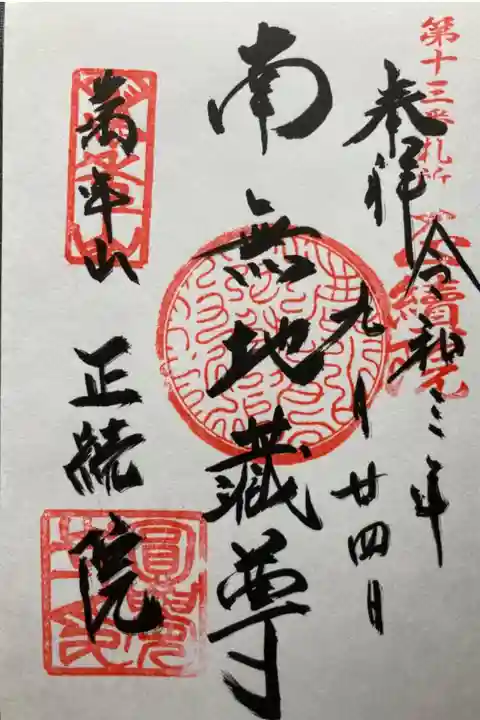 第十三番札所
奉拝
令和三年
九月廿四日
南無地蔵尊
萬年山
正続院